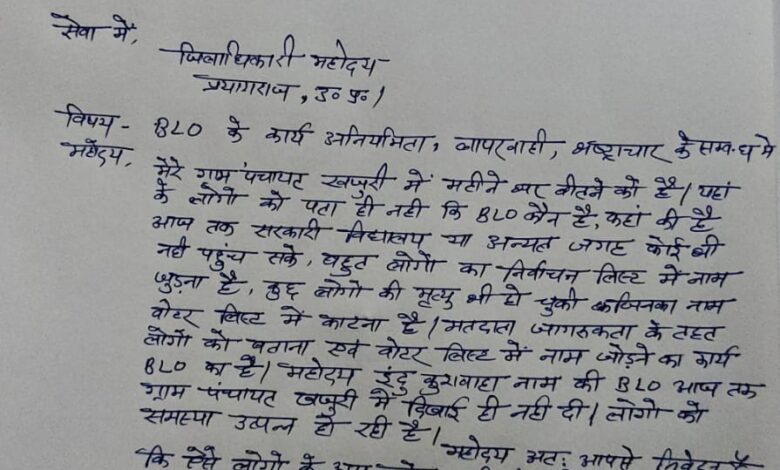 सेवा में,
जिलाधिकारी महोदय
प्रयागराज, उ० प्र० ।
विषय - BLO के कार्य अनियमिता, लापरवाही, भष्ट्राचार के सम्बन्ध मे
महोदय,
मेरे ग्राम पंचायट खजुरी में महीने भर बीतने को है। यहां
के लोगो को पता ही नही कि BLO कौन है, कहां की है
आज तक सरकारी विद्यालय या अन्यत जगह कोई भी
नही पहुंच सके, बहुत लोगों का निर्वाचन लिस्ट में नाम
जुड़ना है, कुछ लोगों की मृत्यु भी हो चुकी जिनका नाम
वोटर लिस्ट में काटना है। मतदाता जागरुकता के तहत
लोगों को बताना एवं वोटर लिस्ट में नाम जोड़ने का कार्य
BLO का है। महोदय इंदु कुशवाहा नाम की BLO आज तक
ग्राम पंचायट खजुरी में दिखाई ही नही दी। लोगो को
समस्या उत्पन्न हो रही है।
महोदय अतः आपसे
कि ऐसे लोगों के